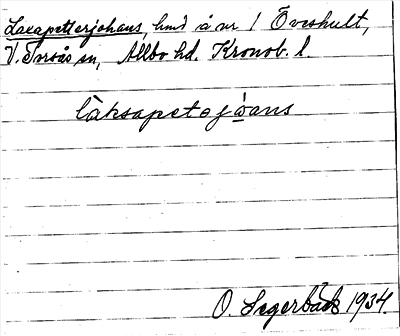 Laxapetterjohans, hmd å nr 1 Överhult,
V. Torsås sn, Allbo hd. Kronob. l.
làksapetəjẁans
O. Segerbäck 1934.